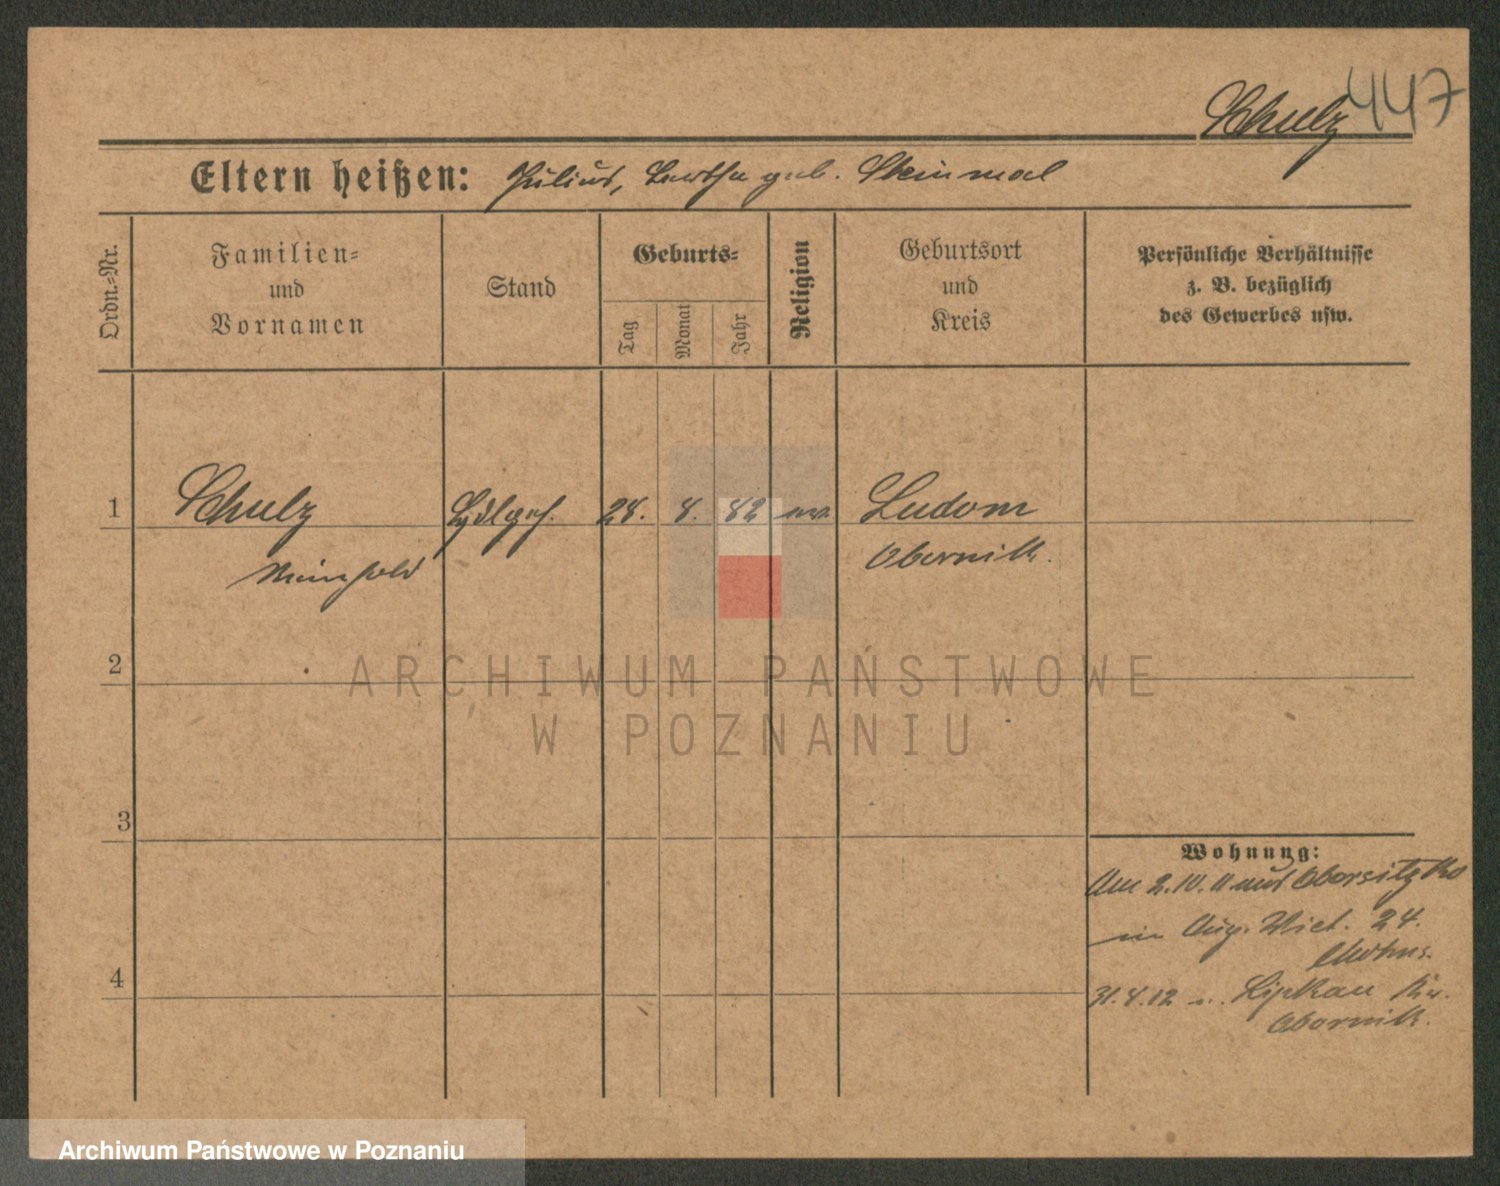 Schulz 447
Eltern heißen: Julius, Bertha geb. Steinmal
Ordn.-Nr.
Familien-
und
Vornamen
Stand
Geburts-
Tag
Monat
Jahr
Religion
Geburtsort
und
Kreis
Persönliche Verhältnisse
z. B. bezüglich
des Gewerbes usw.
1
Schulz
28. 8. 82 ev.
Ludom
Obornik.
2
ARCHIWUM PAŃSTWOWE
W POZNANIU
3
4
Wohnung:
Am 2.10.11 aus Obersitzko
in Aug. Vict. 24.
31.8.12 n. Lipkau Kr.
Obornik.
Archiwum Państwowe w Poznaniu